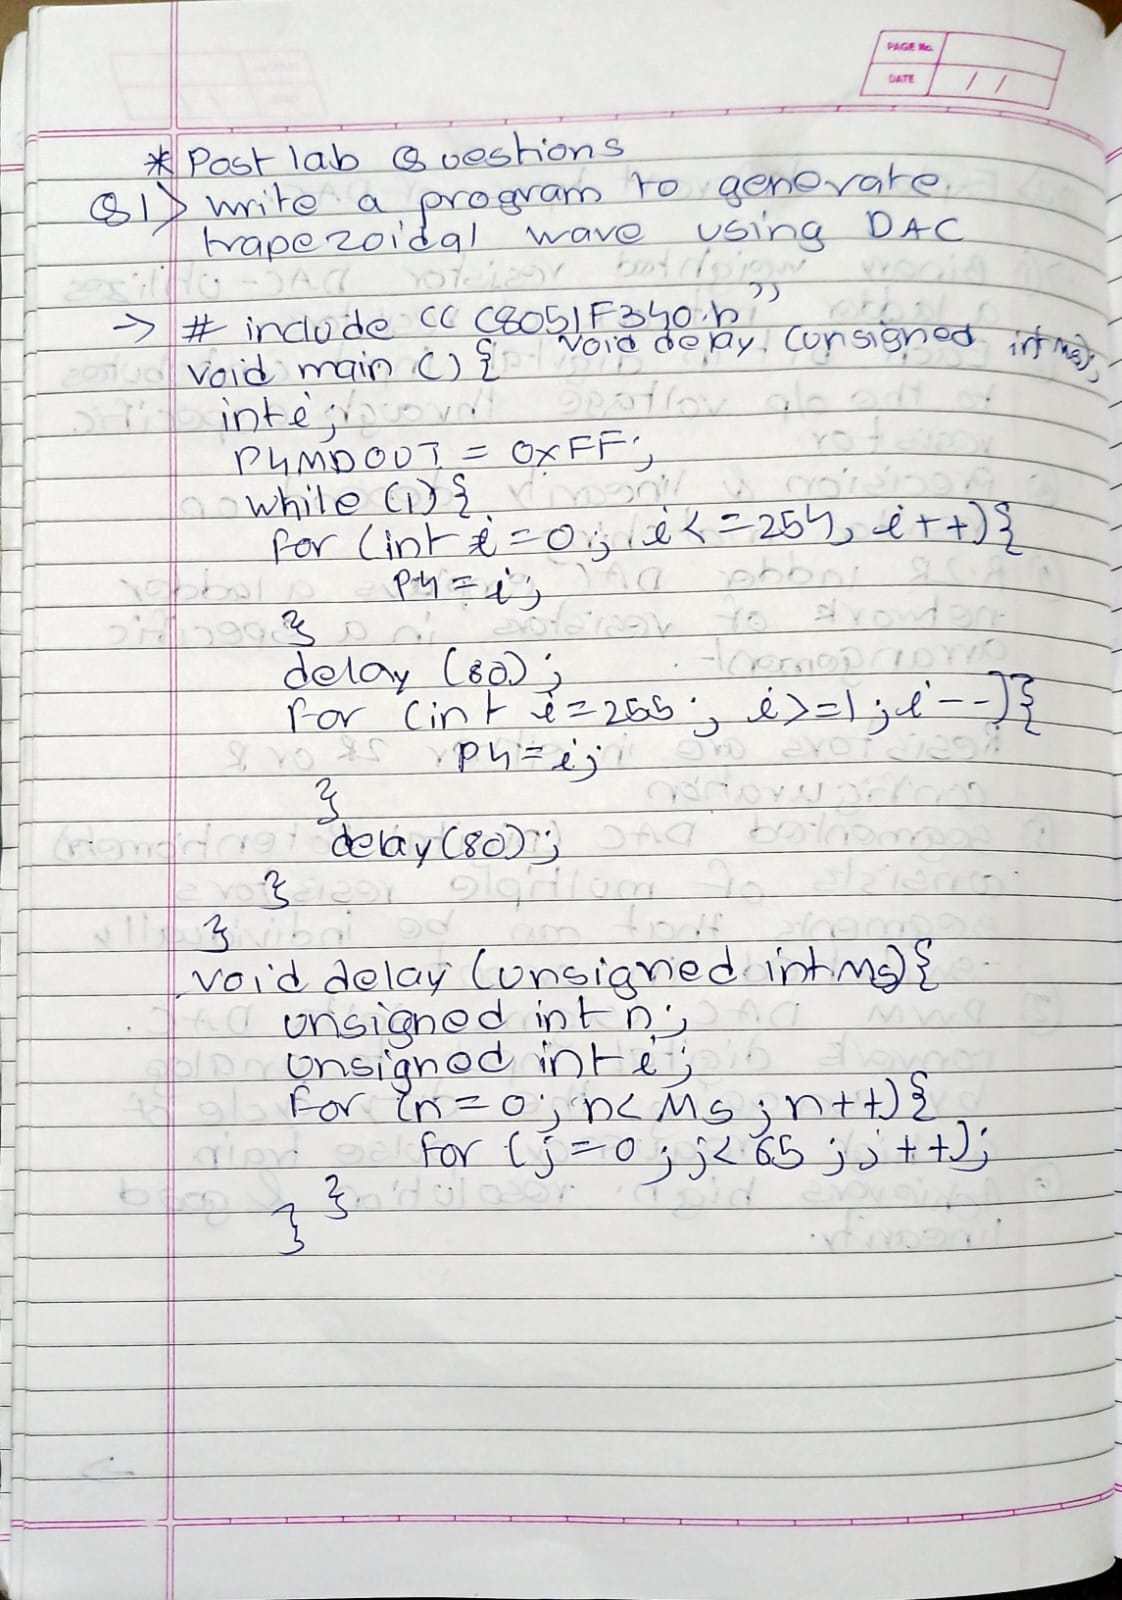 PAGE No.
DATE / /
* Post lab Questions
Q1> write a program to generate
trapezoidal wave using DAC
→ # include "C8051F340.h"
void delay (unsigned int Ms);
void main () {
int i;
P4MDOUT = 0xFF;
while (1) {
for (int i=0; i<=254, i++){
P4=i;
}
delay (80);
for (int i=255; i>=1; i--){
P4=i;
}
delay(80);
}
}
void delay (unsigned int Ms) {
unsigned int n;
unsigned int i;
for (n=0; n< Ms; n++){
for (j=0; j<65; j++);
}
}